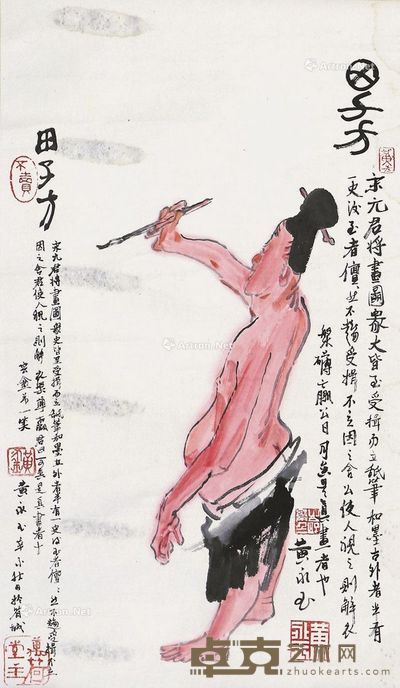 田子方
宋元君将畫圖衆大皆至受揖而立舐筆和墨在外者半有
一史後至者儃儃然不趨受揖不立因之舍公使人視之則解衣
槃礴羸公曰可矣是真畫者也
黄永玉
田子方
不賣
宋元君将畫圖衆史皆至受揖而立舐筆和墨在外者半有一史後至者儃儃然不趨受揖不立
因之舍君使人視之則解衣槃礴羸君曰可矣是真畫者也
一笑
黄永玉
Artron.net
卓克艺术网
zhuokearts.com